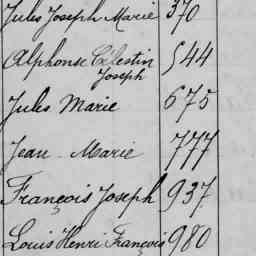 Jules Joseph Marie 370
Alphonse Célestin 544
Joseph
Jules Marie 675
Jean-Marie 777
François Joseph 937
Louis Henri François 980